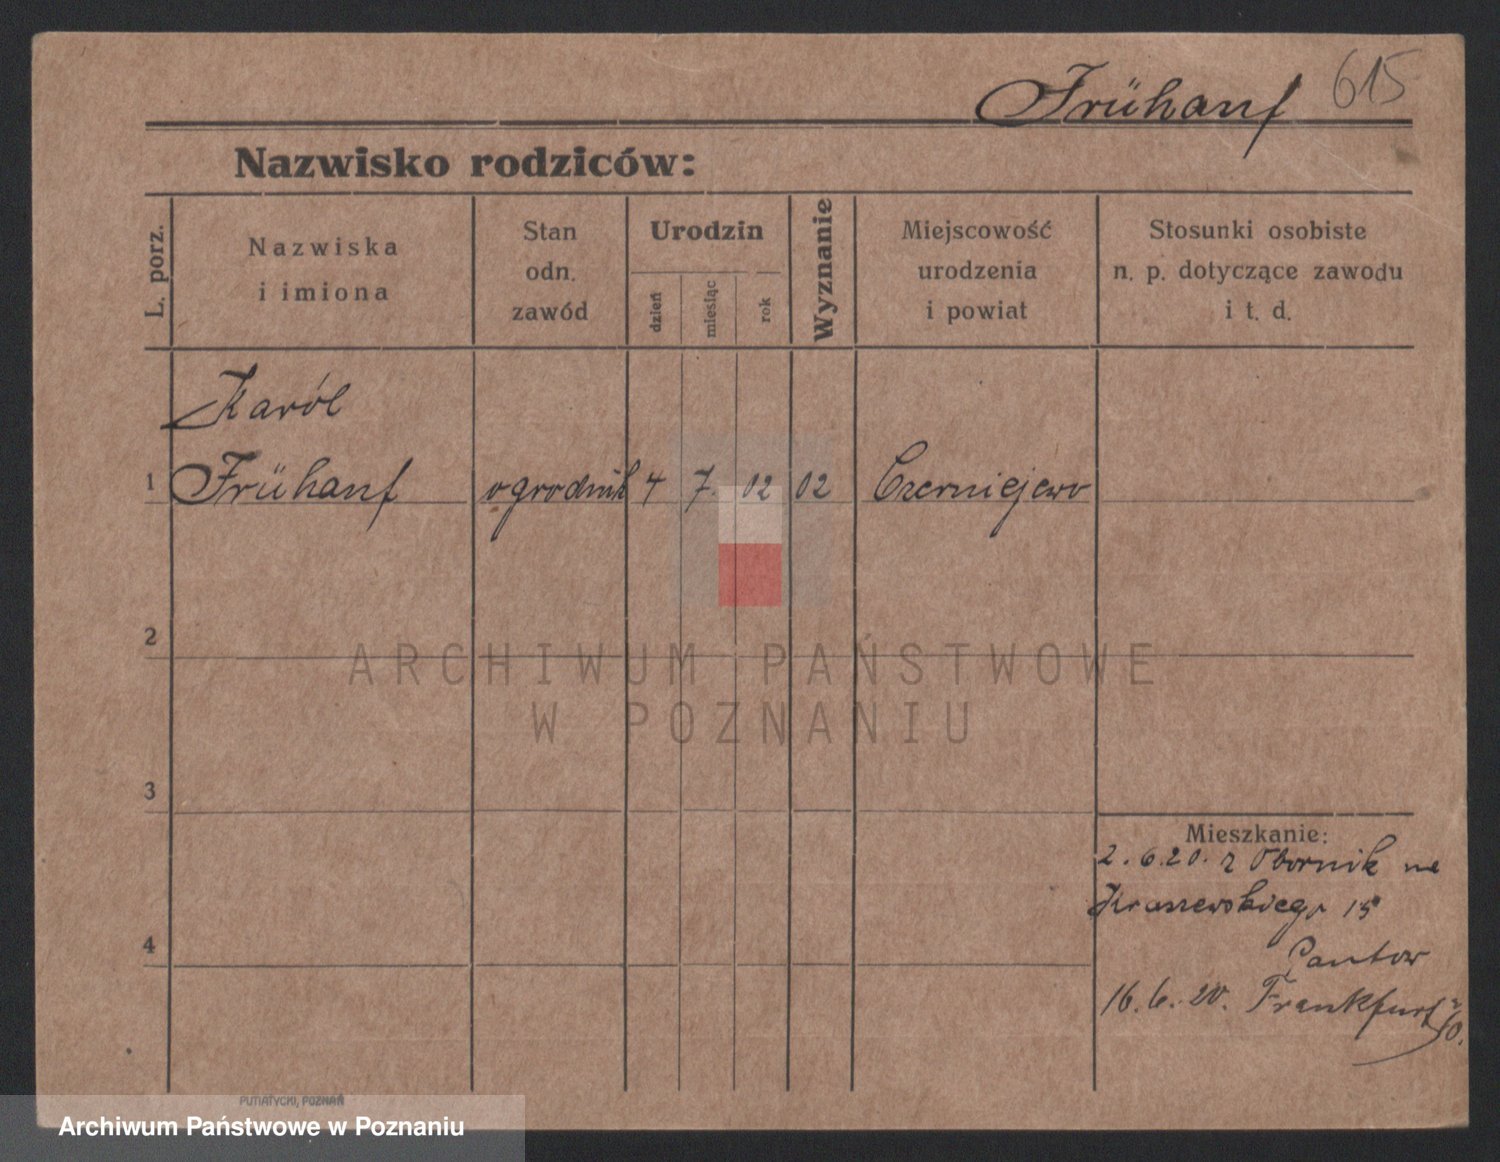 Frühauf 615
Nazwisko rodziców:
L. porz.
Nazwiska
i imiona
Stan
odn.
zawód
Urodzin
dzień
miesiąc
rok
Wyznanie
Miejscowość
urodzenia
i powiat
Stosunki osobiste
n. p. dotyczące zawodu
i t. d.
Karól
1 Frühauf ogrodnik 4 7. 02 02 Czerniejewo
2
ARCHIWUM PAŃSTWOWE
W POZNANIU
3
Mieszkanie:
2. 6. 20. z Obornik
Kraszewskiego 15
4
16. 6. 20. Frankfurt
PUTIATYCKI, POZNAŃ
Archiwum Państwowe w Poznaniu